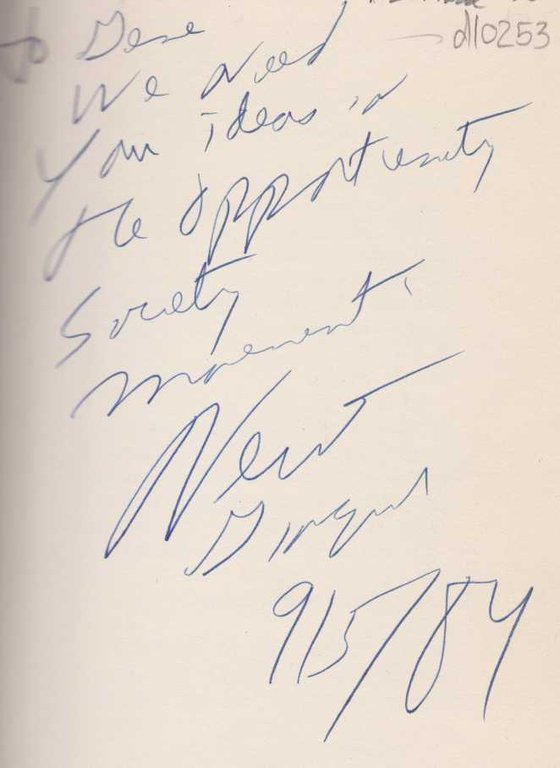 dl0253
To Gene
We need
your ideas in
the opportunity
society
movement.
Newt
Gingrich
9/5/84